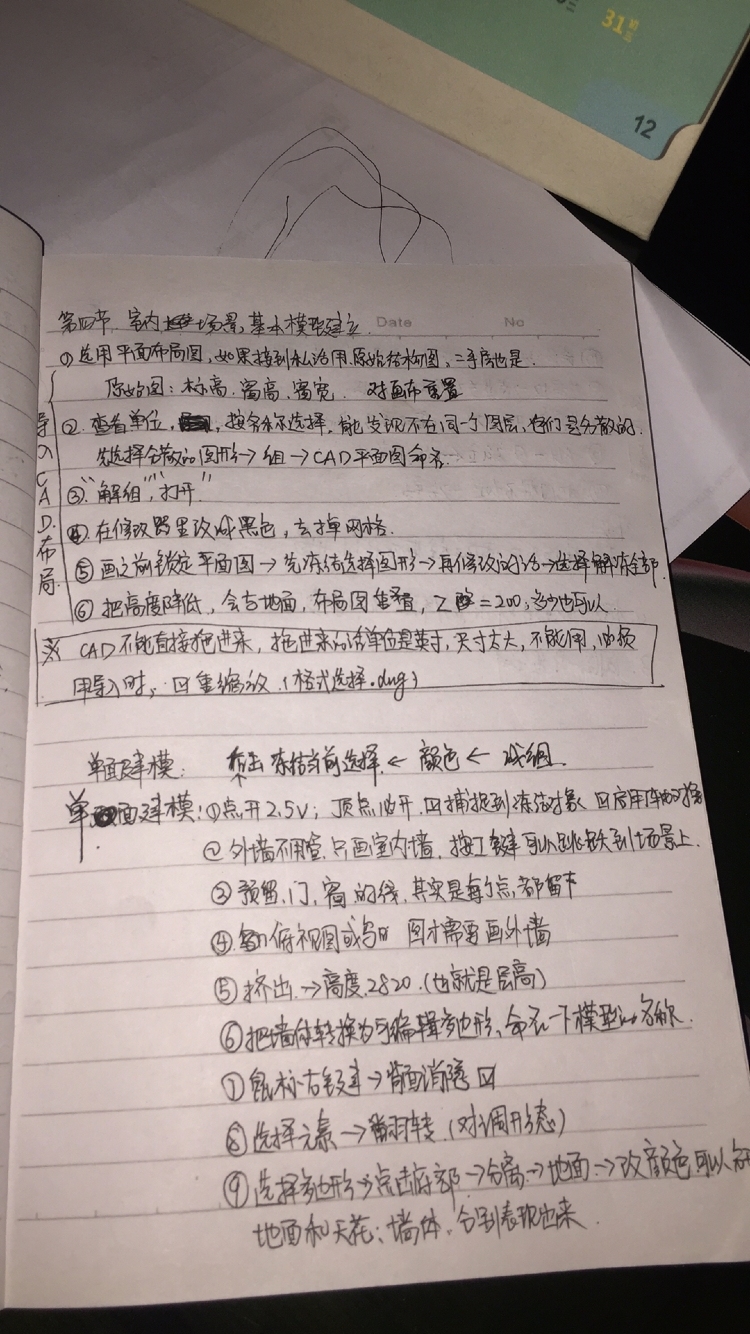 31
12
Date No
第四节 室内 场景,基本模型建立
①选用平面布局图,如果接到私活用原始结构图,二手房也是.
原始图:标高.窗高.窗宽. 对画布重置
导入CAD布局
②.查看单位, 按名称选择,能发现不在同一个图层,它们是分散的.
先选择分散的图形→组→CAD平面图命名.
③."解组","打开"
④.在修改器里改成黑色,去掉网格.
⑤画之前锁定平面图→先冻结选择图形→再修改的话→选择解冻全部.
⑥ 把高度降低,会与地面,布局图重叠, Z =200,多少也可以
※ CAD不能直接拖进来,拖进来的话单位是英寸,尺寸太大,不能用,必须
用导入时, ☑重缩放.(格式选择.dwg)
单面建模: 右击 冻结当前选择.← 颜色 ← 成组.
单面建模:①点开2.5V;顶点必开.☑捕捉到冻结对象 ☑启用 对象
②外墙不用管.只画室内墙,按I键可以跳跃到场景上.
③预留,门,窗的线,其实是每个点,都留下
④ 俯视图或鸟 图才需要画外墙
⑤挤出.→高度.2820.(也就是层高)
⑥把墙体转换为可编辑多边形,命名一下模型的名称.
⑦鼠标右键→背面消隐☑
⑧选择元素→翻转.(对调形态)
⑨选择多边形→点击底部→分离→地面→改颜色可以
地面和天花;墙体.分别表现出来.